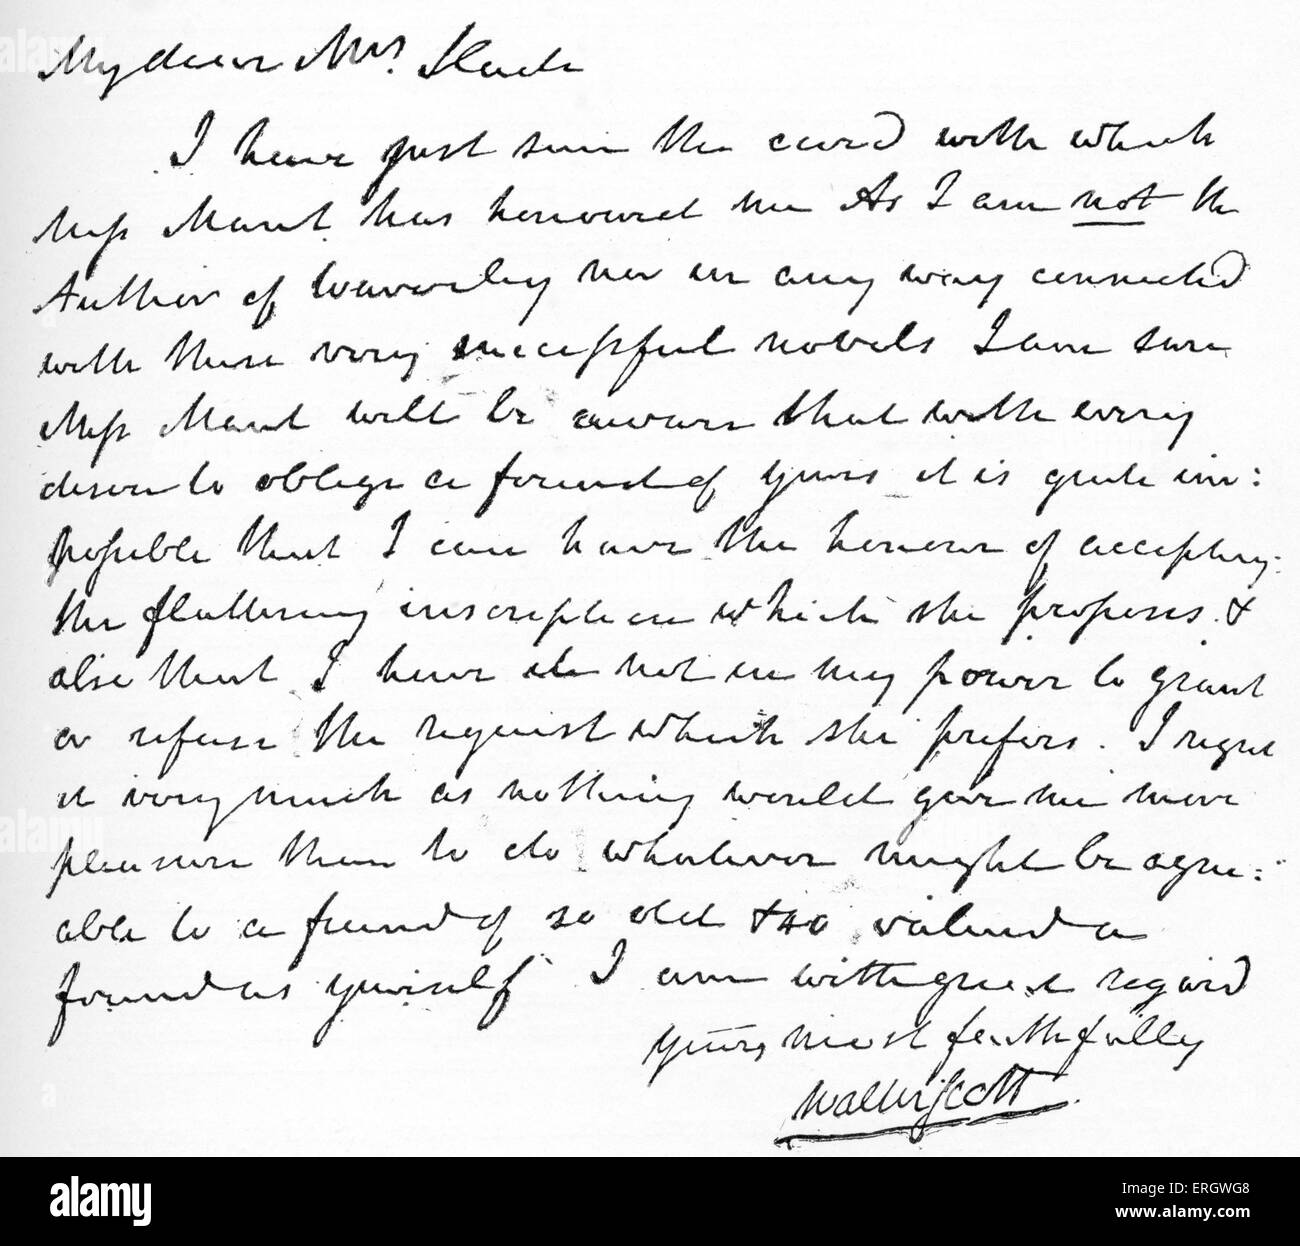 My dear Mrs. Slade
I have just seen the card with which
Miss Mant has honoured me As I am not the
Author of Waverley nor in any way connected
with these very successful novels I am sure
Miss Mant will be aware that with every
desire to oblige a friend of yours it is quite im:
possible that I can have the honour of accepting
the flattering inscription which she proposes &
also that I have not in my power to grant
or refuse the request which she prefers. I regret
it very much as nothing would give me more
pleasure than to do whatever might be agre:
able to a friend of so old & so valued a
friend as yourself I am with great regard
yours most faithfully
Walter Scott
alamy
alamy
a
alamy
Image ID: ERGWG8
www.alamy.com